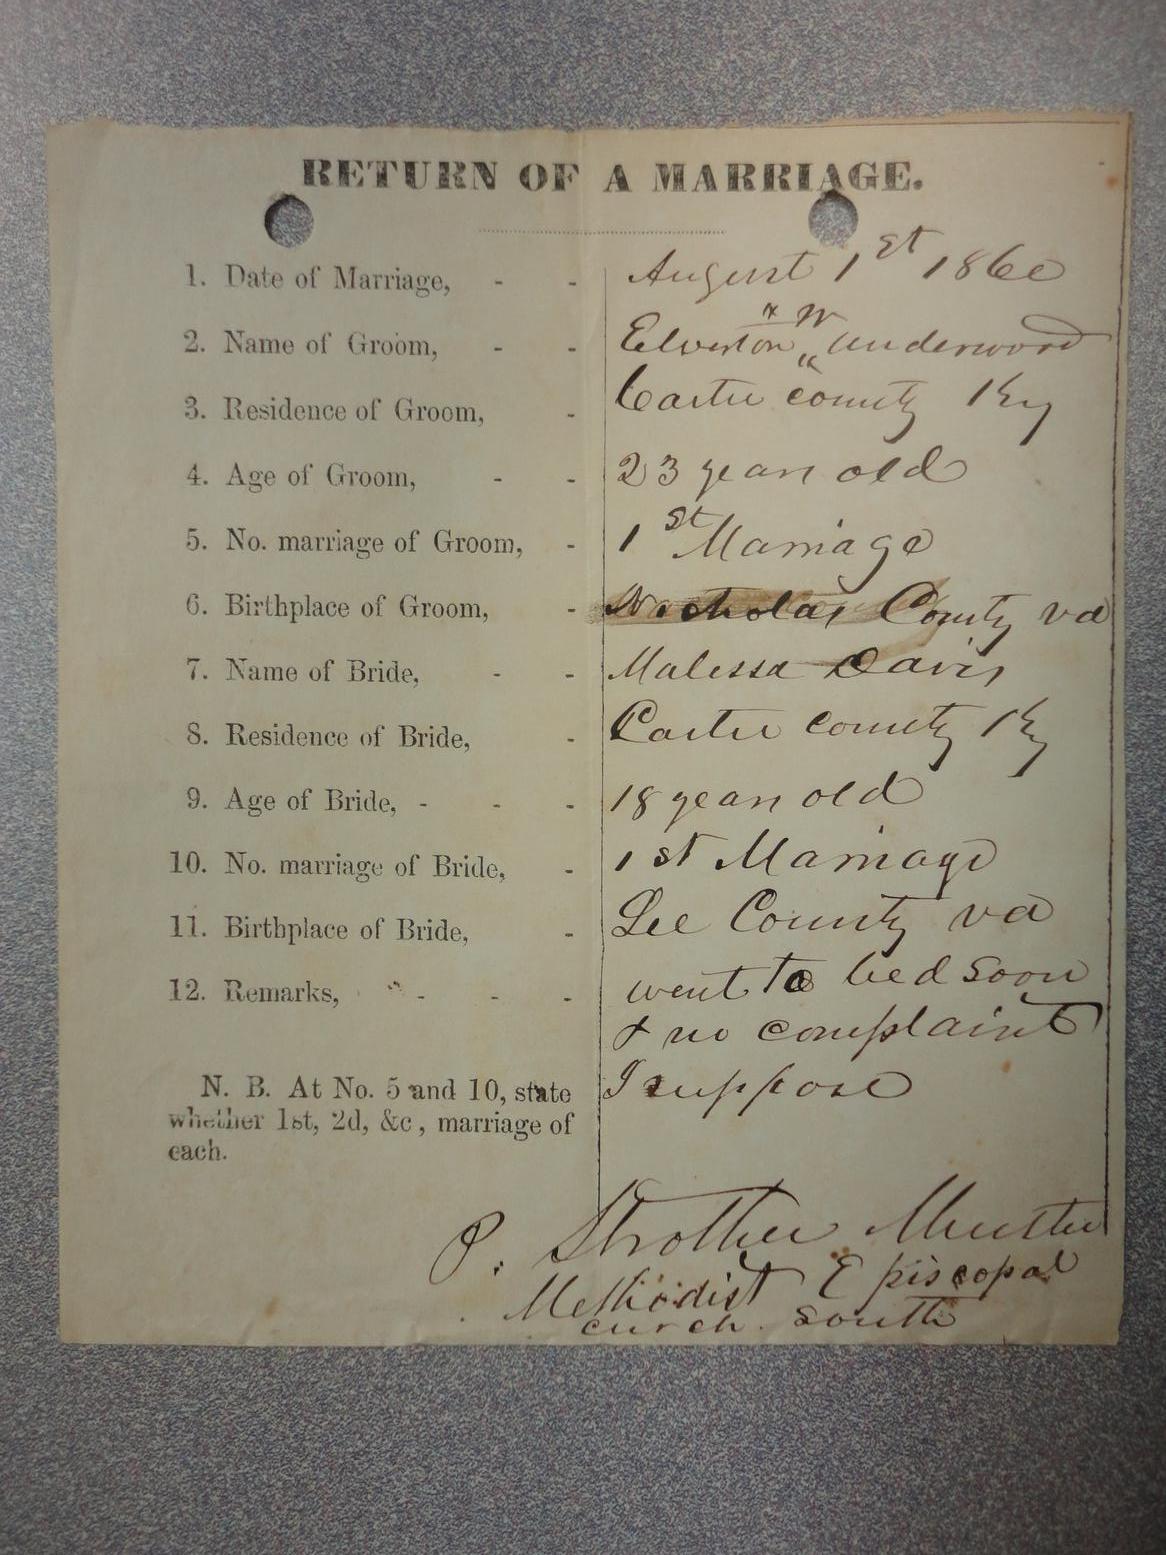 RETURN OF A MARRIAGE.
1. Date of Marriage, - - August 1st 1860
2. Name of Groom, - - Elverton W Underwood
3. Residence of Groom, - Carter county Ky
4. Age of Groom, - - 23 years old
5. No. marriage of Groom, - 1st Marriage
6. Birthplace of Groom, - Nicholas County va
7. Name of Bride, - - Malessa Davis
8. Residence of Bride, - Carter county Ky
9. Age of Bride, - - - 18 years old
10. No. marriage of Bride, - 1st Marriage
11. Birthplace of Bride, - Lee County va
12. Remarks, - - - went to bed soon
& no complaint
I suppose
N. B. At No. 5 and 10, state
whether 1st, 2d, &c, marriage of
each.
P. Strother
Methodist Episcopal
curch. south